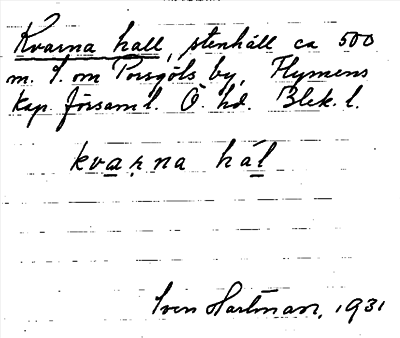 Kvarna hall, stenhäll ca 500
m. S. om Porsgöls by, Flymens
kap. församl. Ö. hd. Blek. l.
kvaṛna hál
Sven Hartman, 1931